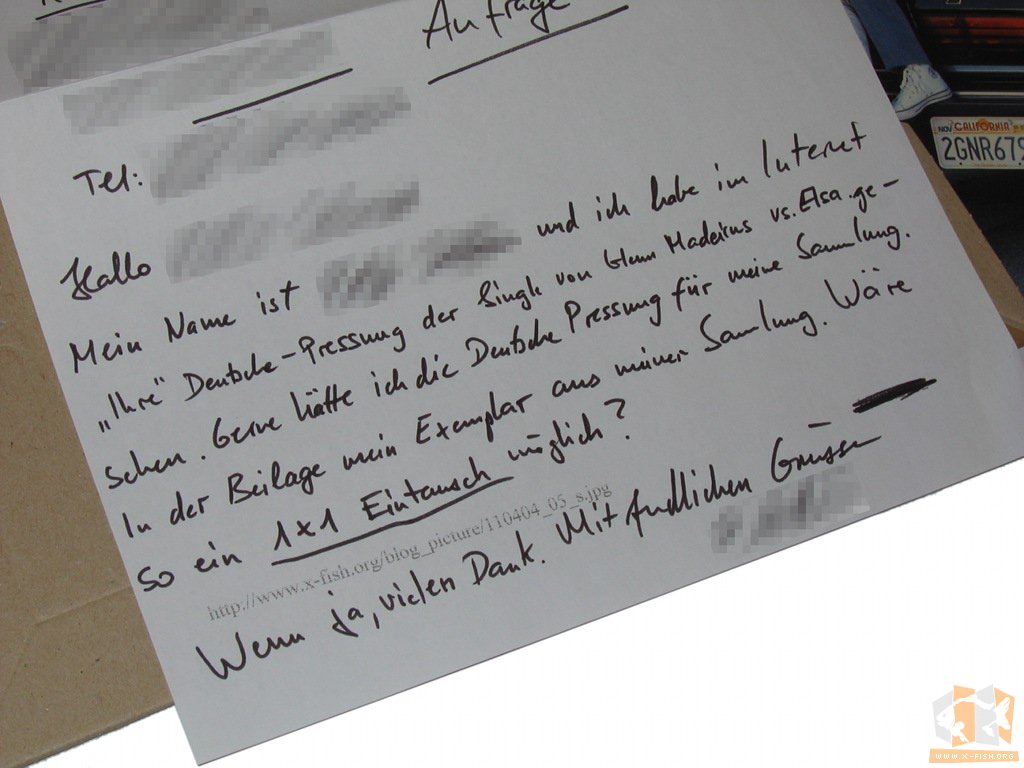 Anfrage
Tel:
Hallo
Mein Name ist und ich habe im Internet
„Ihre" Deutsche-Pressung der Single von Glenn Madeiros vs. Elsa ge-
sehen. Gerne hätte ich die Deutsche Pressung für meine Sammlung.
In der Beilage mein Exemplar aus meiner Sammlung. Wäre
so ein 1x1 Eintausch möglich?
http://www.x-fish.org/blog_picture/110404_05_s.jpg
Wenn ja, vielen Dank. Mit fundlichen Grüssen
NOV CALIFORNIA
2GNR679
WWW.X-FISH.ORG